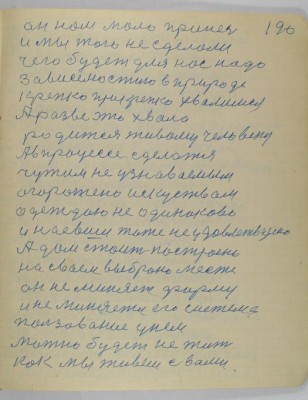 он ном мало принея 190
и мы того не сделали
чего будет для нас надо
Зависеностию в природе
Крепко прекрепко хвалимся
А разве это хвало
родится живому человеку
Ав процессе сделатя
чужим не узнаваемым
огорожено искуствам
одеждаю не одиноково
и наевши тоже не удовлетварено
А дом стоит построень
на своем выброно месте
он не меняет форму
и не миняети его система
ползование унем
можно будет не жит
как мы живем с вами